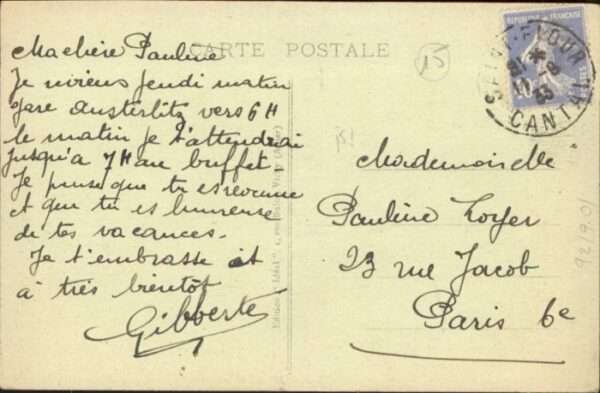 CARTE POSTALE
Ma chère Pauline
Je reviens jeudi matin
gare Austerlitz vers 6H
le matin je t'attendrai
jusqu'à 7H au buffet
Je pense que tu es revenue
et que tu es heureuse
de tes vacances.
Je t'embrasse et
à très bientôt
Gilberte
15
REPUBLIQUE FRANÇAISE
SAINT-FLOUR
CANTAL
Mademoiselle
Pauline Loyer
23 rue Jacob
Paris 6e